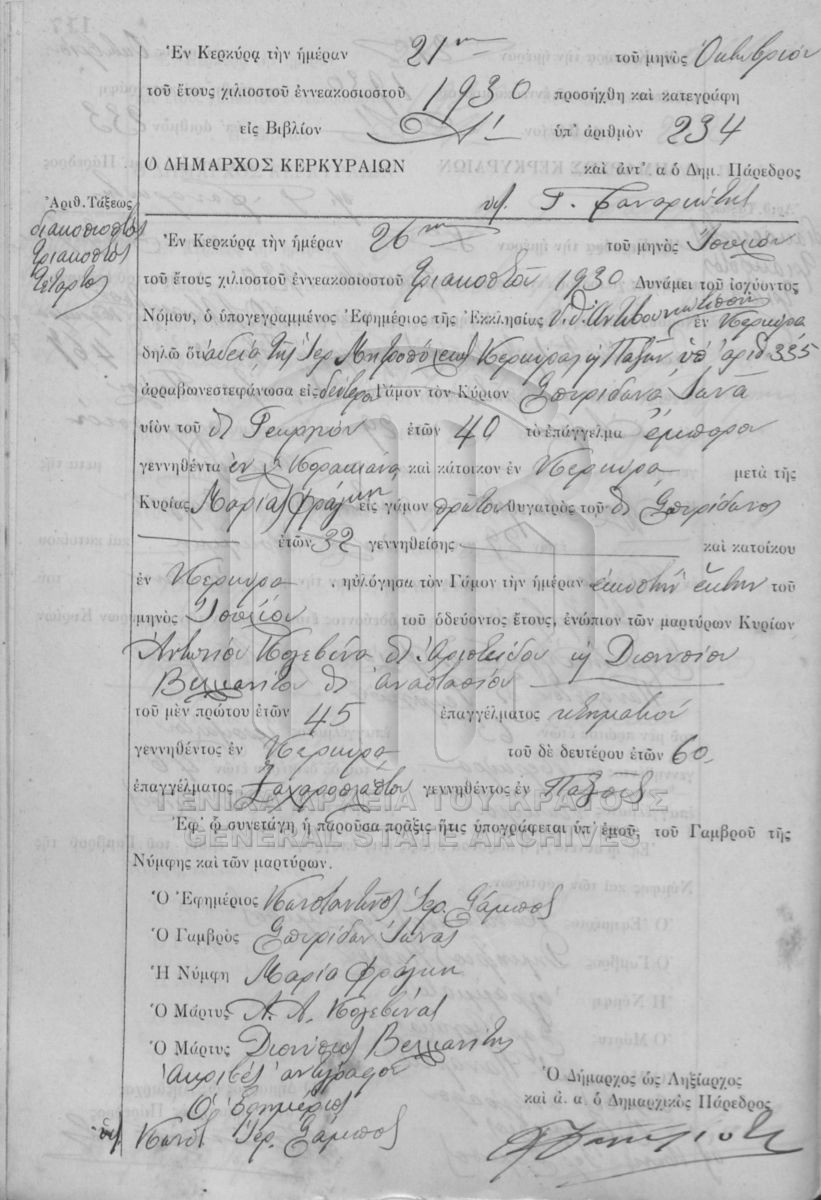 Ἐν Κερκύρᾳ τὴν ἡμέραν 21ην τοῦ μηνὸς Ὀκτωβρίου
τοῦ ἔτους χιλιοστοῦ ἐννεακοσιοστοῦ 1930 προσήχθη καὶ κατεγράφη
εἰς Βιβλίον Δ' ὑπ' ἀριθμὸν 234
Ο ΔΗΜΑΡΧΟΣ ΚΕΡΚΥΡΑΙΩΝ καὶ ἀντ' α ὁ Δημ. Πάρεδρος
Γ. Φαναριώτης
Ἀριθ. Τάξεως
διακοσιοστὸς
τριακοστὸς
τέταρτος
Ἐν Κερκύρᾳ τὴν ἡμέραν 26ην τοῦ μηνὸς Ἰουλίου
τοῦ ἔτους χιλιοστοῦ ἐννεακοσιοστοῦ τριακοστοῦ 1930 Δυνάμει τοῦ ἰσχύοντος
Νόμου, ὁ ὑπογεγραμμένος Ἐφημέριος τῆς Ἐκκλησίας ἐν Κερκύρᾳ
δηλῶ ὅτι ἀδείᾳ τῆς Ἱερ. Μητροπόλεως Κερκύρας ὑπ' ἀριθ 335
ἀρραβωνεστεφάνωσα εἰς δεύτερον Γάμον τὸν Κύριον Σπυρίδωνα Ἰωνᾶ
υἱὸν τοῦ Γεωργίου ἐτῶν 40 τὸ ἐπάγγελμα ἔμπορον
γεννηθέντα ἐν Κορακιάνᾳ καὶ κάτοικον ἐν Κερκύρᾳ μετὰ τῆς
Κυρίας Μαρίας Φράγκη εἰς γάμον πρῶτον θυγατρὸς τοῦ Σπυρίδωνος
ἐτῶν 32 γεννηθείσης καὶ κατοίκου
ἐν Κερκύρᾳ, ηὐλόγησα τὸν Γάμον τὴν ἡμέραν εἰκοστὴν ἕκτην τοῦ
μηνὸς Ἰουλίου τοῦ ὁδεύοντος ἔτους, ἐνώπιον τῶν μαρτύρων Κυρίων
Ἀντωνίου Κολεβίνα Ἀριστείδου Διονυσίου
Βελλιανίτου Ἀναστασίου
τοῦ μὲν πρώτου ἐτῶν 45 ἐπαγγέλματος κτηματίου
γεννηθέντος ἐν Κερκύρᾳ τοῦ δὲ δευτέρου ἐτῶν 60
ἐπαγγέλματος Ζαχαροπλάστου γεννηθέντος ἐν Παξοῖς
ΓΕΝΙΚΑ ΑΡΧΕΙΑ ΤΟΥ ΚΡΑΤΟΥΣ
Ἐφ' ᾧ συνετάγη ἡ παροῦσα πρᾶξις ἥτις ὑπογράφεται ὑπ' ἐμοῦ, τοῦ Γαμβροῦ τῆς
GENERAL STATE ARCHIVES
Νύμφης καὶ τῶν μαρτύρων.
Ὁ Ἐφημέριος Κωνσταντῖνος Ἱερ. Σάμπος
Ὁ Γαμβρὸς Σπυρίδων Ἰωνᾶς
Ἡ Νύμφη Μαρία Φράγκη
Ὁ Μάρτυς Α. Α. Κολεβίνας
Ὁ Μάρτυς Διονύσιος Βελλιανίτης
Ἀκριβὲς ἀντίγραφον
Ὁ Ἐφημέριος
Ὁ Δήμαρχος ὡς Ληξίαρχος
καὶ ἀ. α. ὁ Δημαρχικὸς Πάρεδρος
Κωνστ Ἱερ. Σάμπος